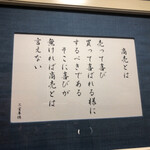 商売とは
売って喜び
買って喜ばれる様に
するべきである
そこに喜びが
無ければ商売とは
言えない